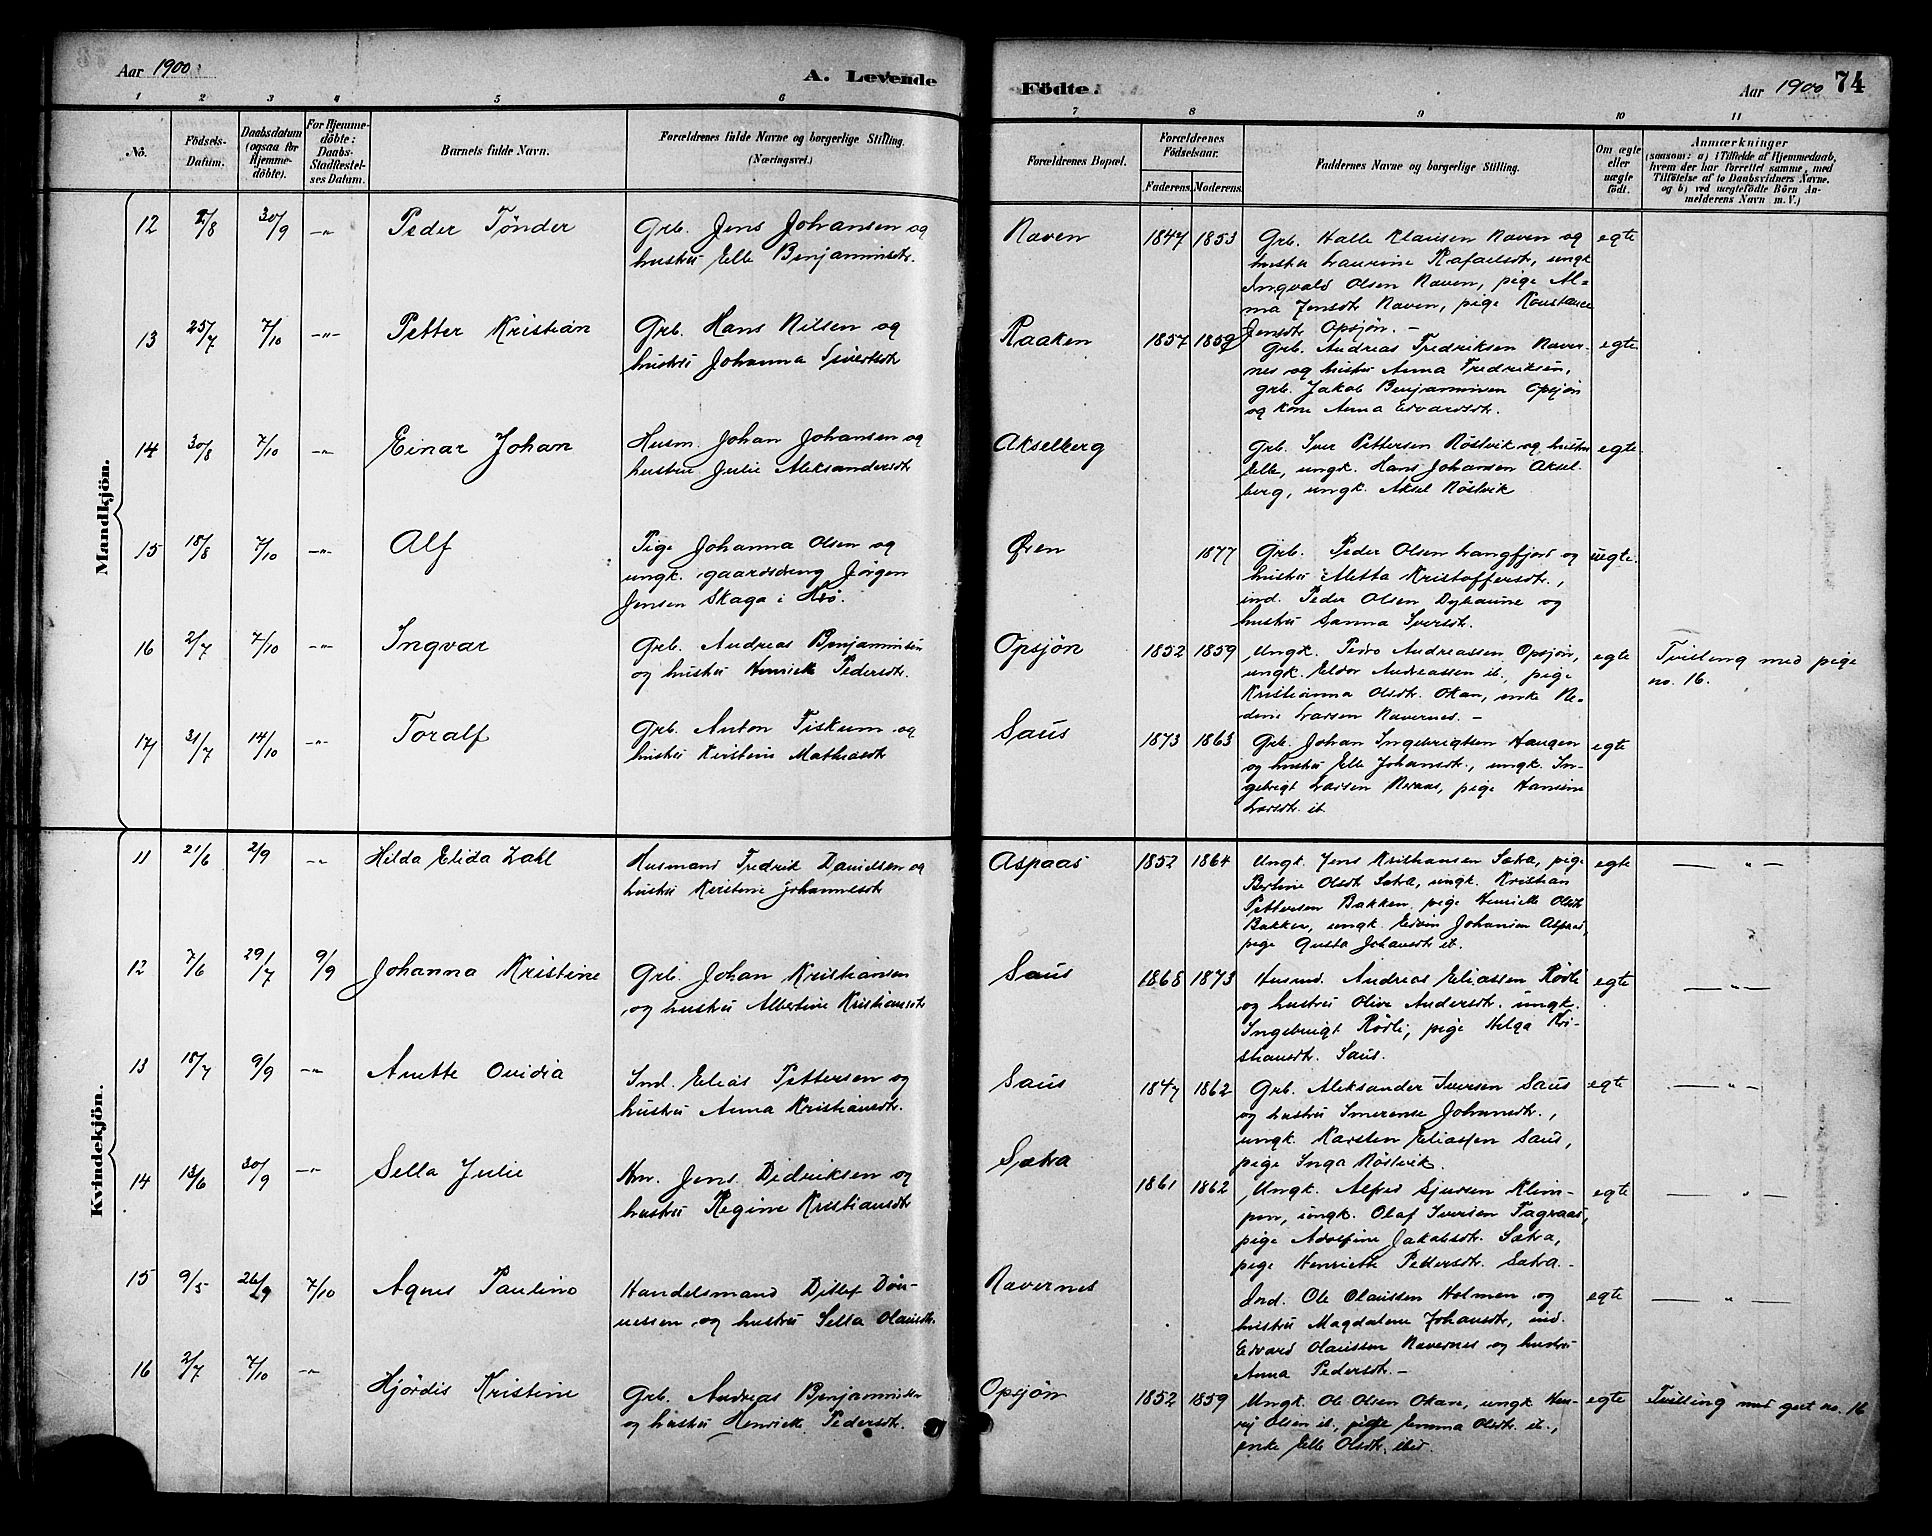 Aar 1900
A. Levende
Födte.
Aar 1900 74
1 2 3 4 5 6 7 8 9 10 11
No.
Födsels-
Datum.
Daabsdatum
(ogsaa for
Hjemme-
döbte).
For Hjemme-
döbte:
Daabs-
Stadfæstel-
ses Datum.
Barnets fulde Navn.
Forældrenes fulde Navne og borgerlige Stilling.
(Næringsvei.)
Forældrenes Bopæl.
Forældrenes
Födselsaar.
Faderens. Moderens.
Faddernes Navne og borgerlige Stilling.
Om ægte
eller
uægte
födt.
Anmærkninger
(saasom: a) i Tilfælde af Hjemmedaab,
hvem der har forrettet samme, med
Tilföielse af to Daabsvidners Navne,
og b) ved uægtefödte Börn An-
melderens Navn m. V.)
Mandkjön.
12 2/8 30/9 -"- Peder Tönder
Grb. Jens Johansen og
hustru Elle Benjaminsdtr.
Naven 1847 1853
Grb. Halle Klausen Naven og
hustru Laurine Rafaelsdt, ungk
Ingvald Olsen Naven, pige Al-
ma Jensdt Naven, pige Konstance
Jensdtr Opsjön. -
egte
13 25/7 7/10 -"- Petter Kristian
Grb. Hans Nilsen og
hustru Johanna Sivertsdtr
Raaken 1857 1859
Grb. Andreas Fredriksen Naver-
nes og hustru Anna Fredriksen,
grb. Jakob Benjaminsen Opsjön
og kone Anna Edvardsdtr.
egte
14 30/8 7/10 -"- Einar Johan
Husm. Johan Johansen og
hustru Julie Aleksandersdt
Akselberg
Grb. Iver Pettersen Röstvik og hustru
Elle, ungk. Hans Johansen Aksel-
berg, ungk. Aksel Röstvik
egte
15 18/8 7/10 -"- Alf
Pige Johanna Olsen og
ungk. gaardsdreng Jörgen
Jensen Skaga i
Ören 1877
Grb. Peder Olsen Langfjord og
hustru Metta Kristoffersdtr.,
ind. Peder Olsen Dyhaune og
hustru Sanna Iversdt.
uegte.
16 2/7 7/10 -"- Ingvar
Grb. Andreas Benjaminsen
og hustru Henrich Pedersdtr.
Opsjön 1852 1859
Ungk. Pedro Andreassen Opsjön,
ungk. Eldor Andreassen it., pige
Kristianna Olsdt. Okan, enke Ne-
dine Larsen Navernes. -
egte
Tvilling med pige
no. 16.
17 31/7 14/10 -"- Toralf
Grb. Anton Fiskum og
hustru Kirstine Mathiasdt
Saus 1873 1863
Grb. Johan Ingebrigtsen Haugen
og hustru Elle Johansdt., ungk. In-
gebrigt Larsen Neraas, pige Hansine
Larsdt. it
egte
Kvindekjön.
11 21/6 2/9 -"- Hilda Elida Zahl
Husmand Fredrik Danielsen og
hustru Kirstine Johannesdt
Aspaas 1852 1864
Ungk. Jens Kristiansen Sætra, pige
Bertine Olsdt Sætra, ungk. Kristian
Pettersen Bakken, pige Henriette Olsdtr
Bakken, ungk. Edvin Johansen Aspaas,
pige Gusta Johansdt it.
egte — " —
12 7/6 29/7 9/9 Johanna Kristine
Grb. Johan Kristiansen
og hustru Albertine Kristiansdt
Saus 1868 1873
Husmd. Andreas Eliassen Rödli
og hustru Olive Andersdt. ungk.
Ingebrigt Rödli, pige Helga Kri-
stiansdt. Saus.
egte — " —
13 18/7 9/9 -"- Anette Ovidia
Ind. Elias Pettersen og
hustru Anna Kristiansdt.
Saus 1847 1862
Grb. Aleksander Iversen Saus
og hustru Smerense Johansdt.,
ungk. Karsten Eliassen Saus,
pige Inga Röstvik.
egte — " —
14 13/6 30/9 -"- Sella Julie
Hm. Jens Didriksen og
hustru Regine Kristiansdt
Sætra 1861 1862
Ungk. Alfred Sjursen Klim-
pen, ungk. Olaf Iversen Fagraas,
pige Adolfine Jakobsdt. Sætra,
pige Henriette Pettersdt. Sætra. -
egte — " —
15 9/5 26/9 7/10 Agnes Pauline
Handelsmand Ditlef Dön-
nessen og hustru Sella Olausdt.
Navernes
Ind. Ole Olaussen Holmen og
hustru Magdalene Johansdt, ind.
Edvard Olaussen Navernes og hustru
Anna Pedersdt. -
egte — " —
16 2/7 7/10 -"- Hjördis Kristine
Grb. Andreas Benjaminsen
og hustru Henrich Pedersdt.
Opsjön 1852 1859
Ungk. Ole Olsen Okan, ungk Hen-
rij Olsen it., pige Emma Olsdt. it.,
enke Elle Olsdt. ibid.
egte Tvilling med gut no. 16